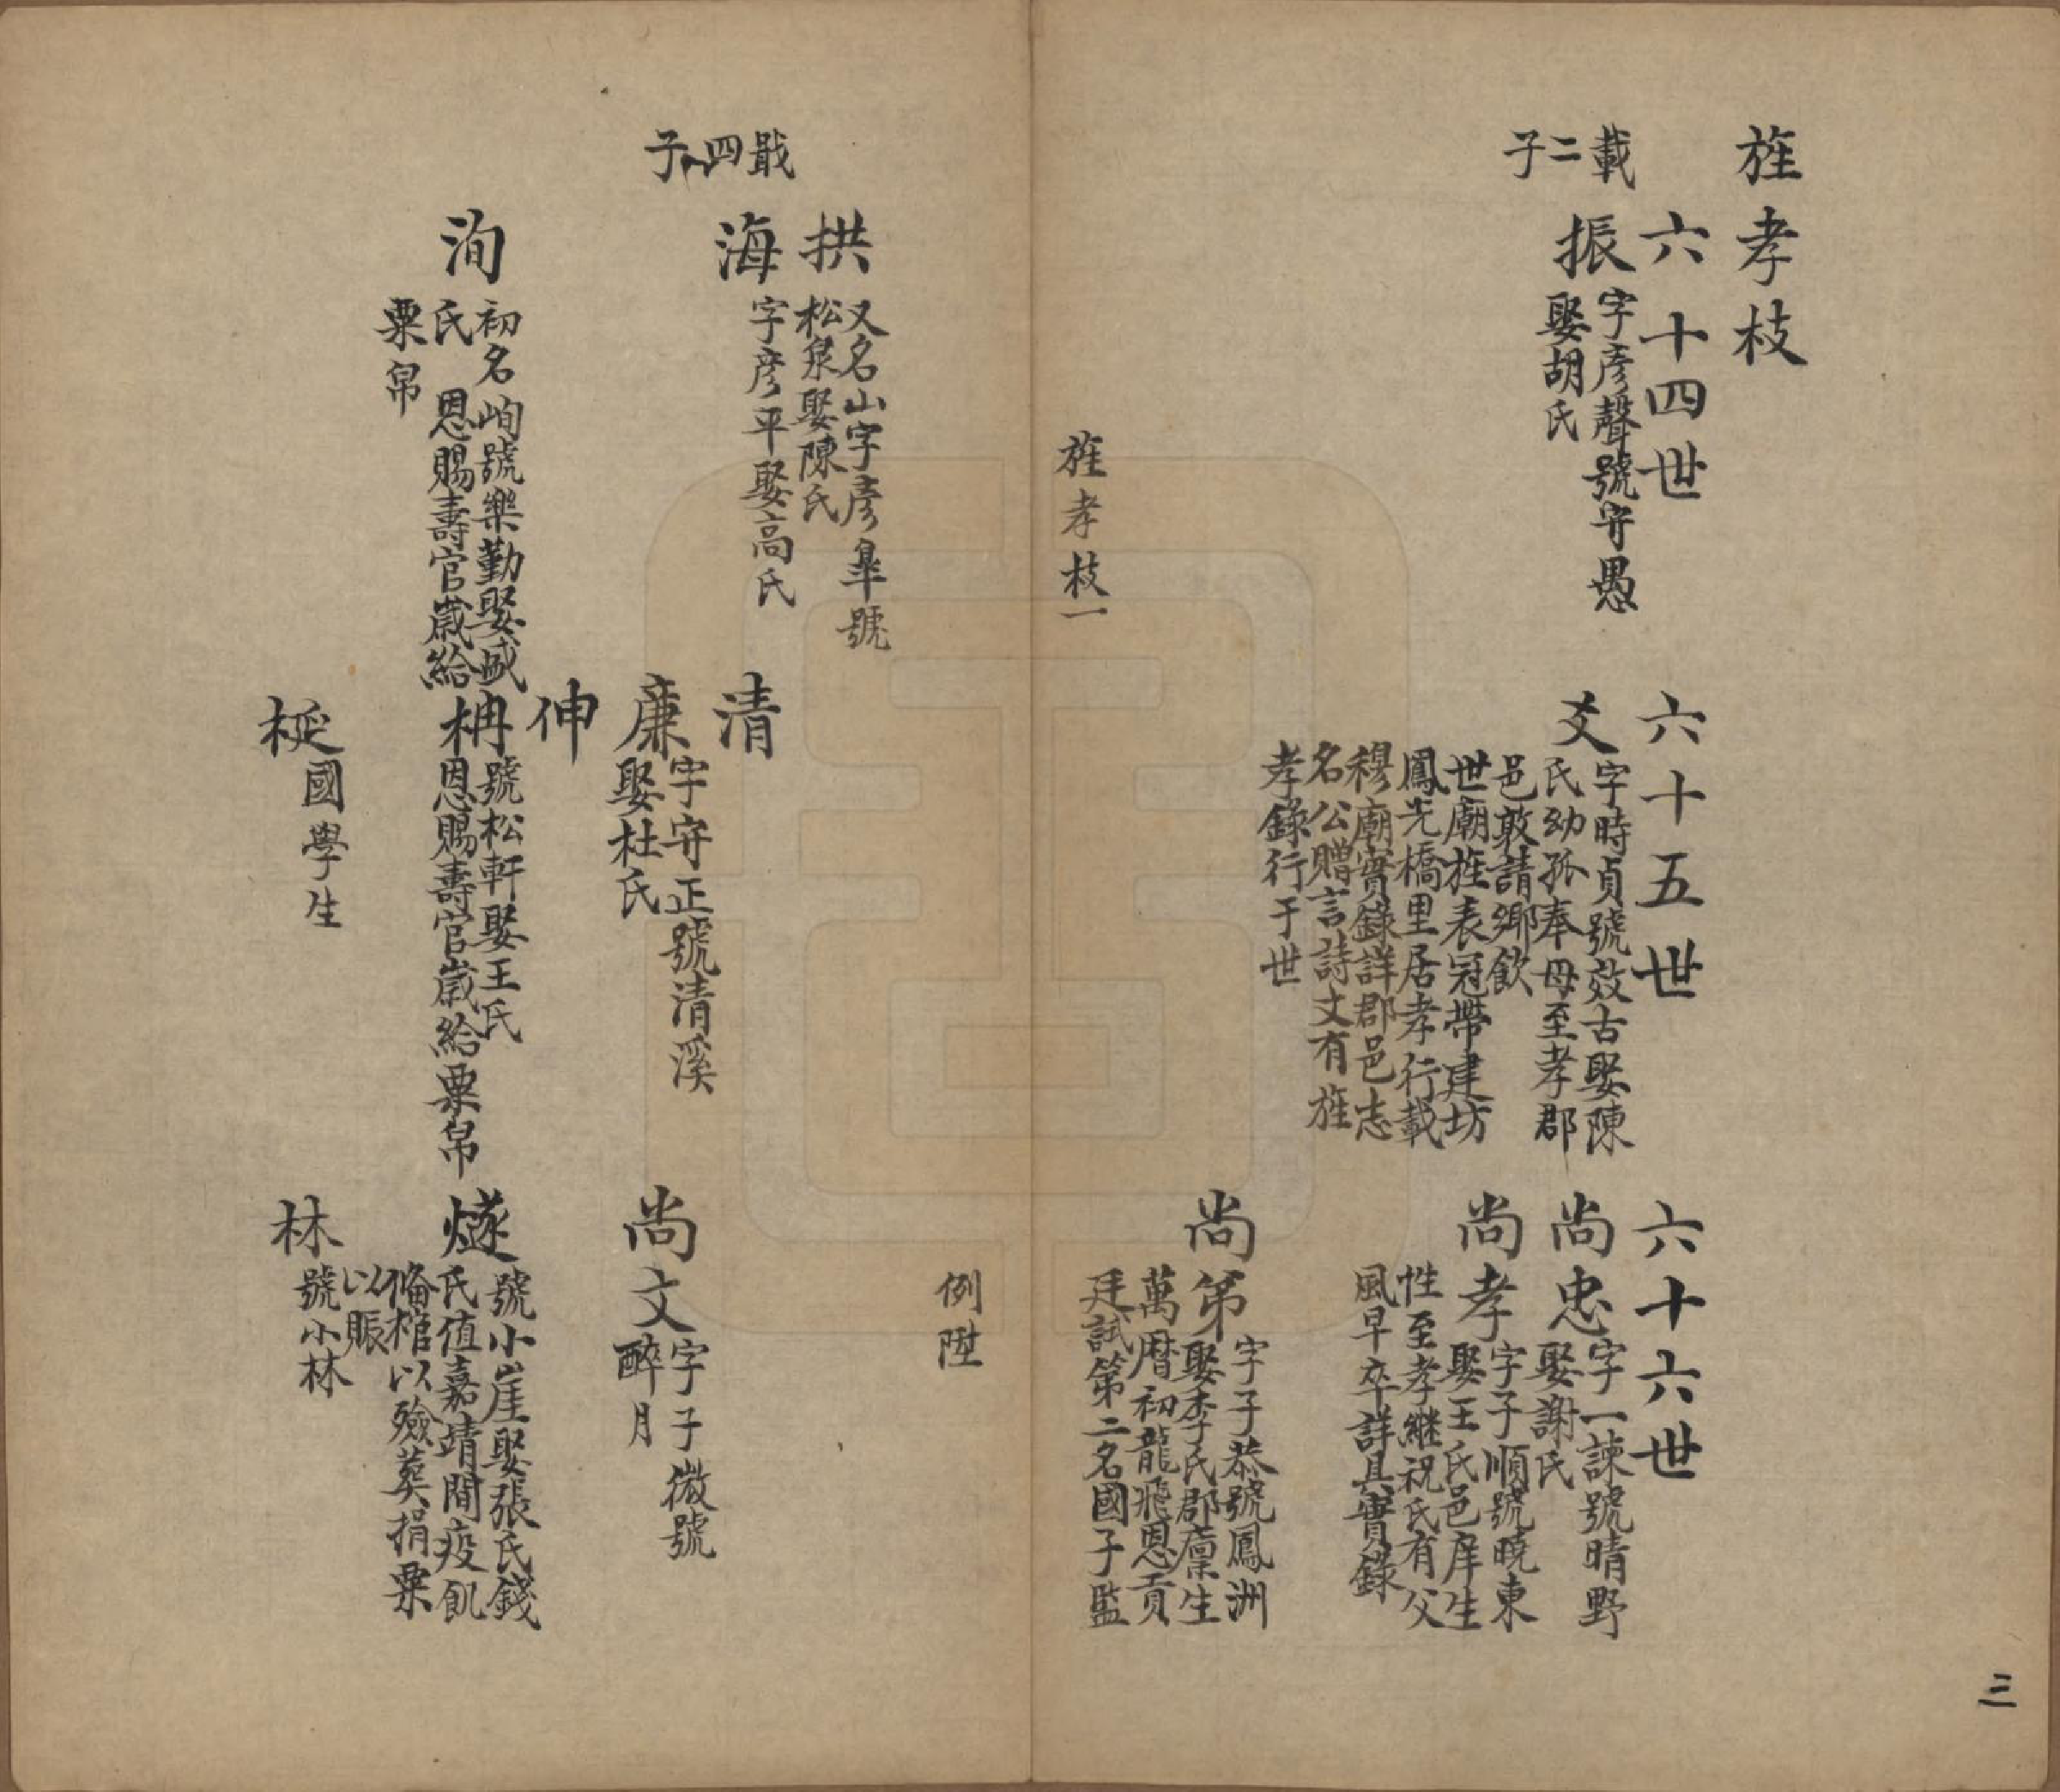 旌孝枝
六十四世
六十五世
六十六世
載二子
振
字彦聲號守愚
娶胡氏
爻
字時貞號效古娶陳
氏幼孤奉母至孝郡
邑敦請鄉飲
世廟旌表冠帶建坊
鳳先橋里居孝行載
穆廟實錄詳郡邑志
名公贈言詩文有旌
孝錄行于世
尚忠
字一諫號晴野
娶謝氏
尚孝
字子順號曉東
娶王氏邑庠生
性至孝繼祝氏有父
風早卒詳具實錄
尚第
字子恭號鳳洲
娶李氏郡廩生
萬曆初龍飛恩貢
廷試第二名國子監
旌孝枝一
三
例陞
戢四子
拱
又名山字彦臯號
松泉娶陳氏
海
字彦平娶高氏
清
廉
字守正號清溪
娶杜氏
尚文
字子微號
醉月
伸
洵
初名峋號樂勤娶戚
氏　恩賜壽官歲給
粟帛
枏
號松軒娶王氏
恩賜壽官歲給粟帛
燧
號小崖娶張氏錢
氏值嘉靖間疫飢
俻棺以殮葬捐粟
以賑
梃
國學生
林
號小林